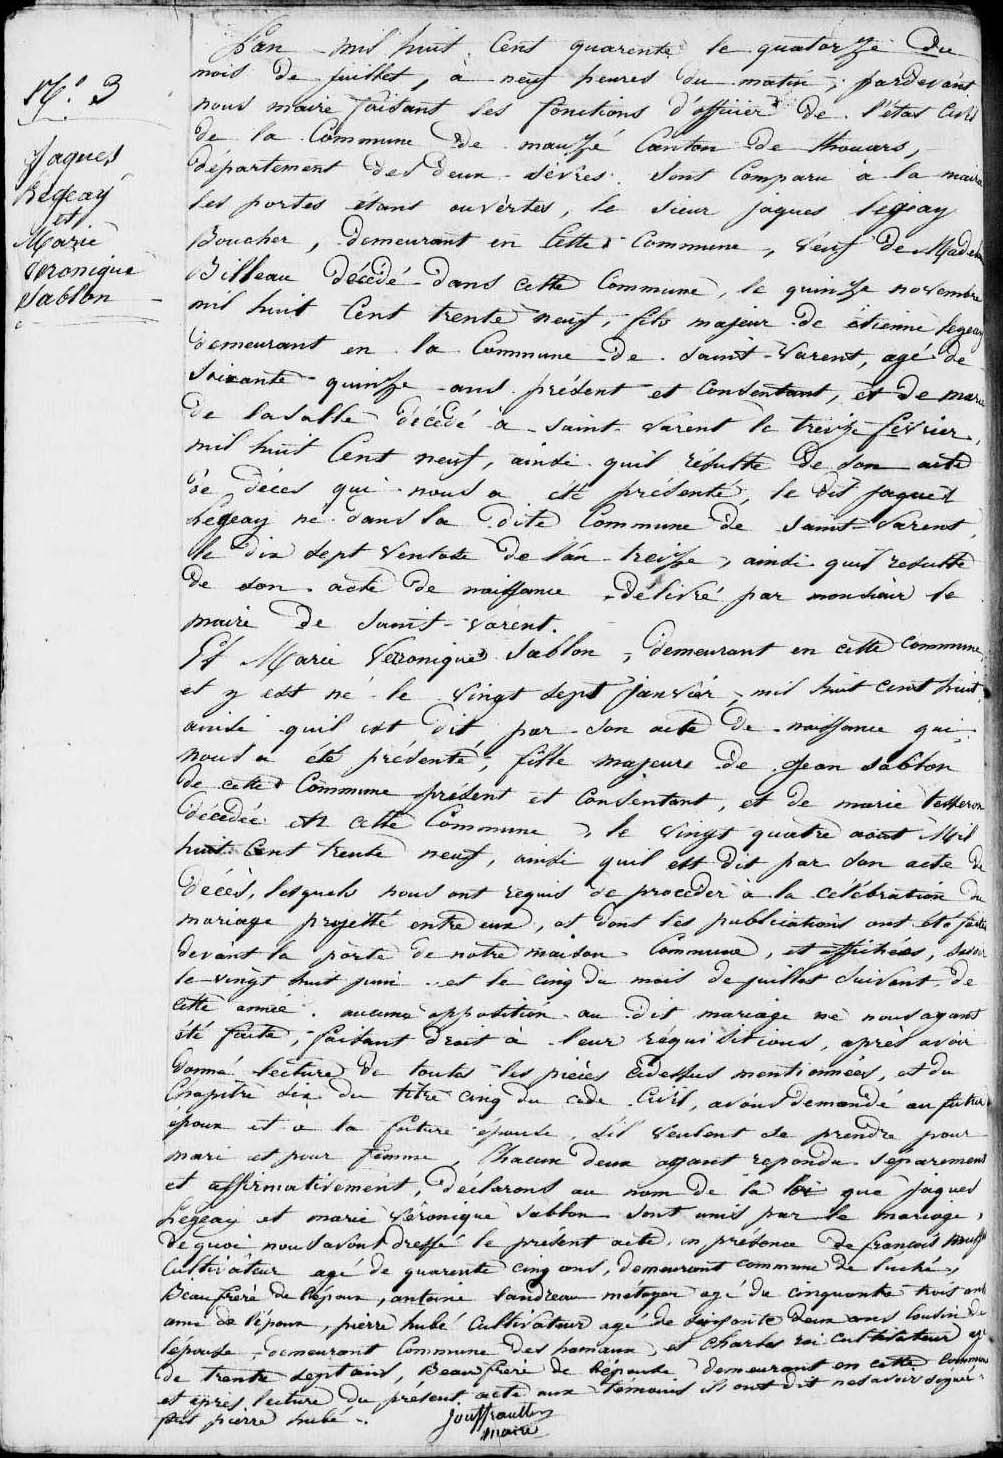 N.° 3
Jaques
Legeay
et
Marie
Veronique
Sablon
L'an mil huit Cent quarente le quatorze du
mois de juillet, à neuf heures du matin, pardevant
nous maire faisant les fonctions d'officier de l'état Civil
de la Commune de mauzé Canton de thouars,
département des deux-sèvres. Sont Comparu à la mairie
les portes étant ouvertes, le sieur jaques legeay
Boucher, demeurant en Cette Commune, veuf de Madelaine
Billeau décédé dans cette Commune, le quinze novembre
mil huit Cent trente neuf, fils majeur de étienne legeay
demeurant en la Commune de Saint-Varent, agé de
soixante quinze ans présent et Consentant, et de marie
de lasalle décédé à saint-varent le treize février,
mil huit Cent neuf, ainsi quil résulte de son acte
de déces qui nous a été présenté, le dit jaques
Legeay né dans la dite Commune de Saint-Varent,
le dix sept Ventose de l'an treize, ainsi quil resulte
de son acte de naissance délivré par monsieur le
maire de saint-varent.
Et Marie Veronique Sablon, demeurant en cette commune
et y est né le vingt sept janvier, mil huit cent huit
ainsi quil est dit par son acte de naissance qui
nous a été présenté, fille majeure de Jean sablon
de cette Commune présent et Consentant, et de marie tesseron
décédée en cette Commune, le vingt quatre aout Mil
huit Cent trente neuf, ainsi quil est dit par son acte de
décès, lesquels nous ont requis de proceder à la célébration du
mariage projetté entre eux, et dont les publications ont été faites
devant la porte de notre maison Commune, et affichées, savoir
le vingt huit juin et le cinq du mois de juillet suivant de
cette année. aucune opposition au dit mariage ne nous ayant
été faite, faisant droit a leur réquisitions, après avoir
donné lecture de toutes les pièces cidessus mentionnées, et du
Chapitre six du titre cinq du code Civil, avons demandé au futur
époux et à la future épouse, s'il veulent se prendre pour
mari et pour femme, Chacun deux ayant repondu separement
et affirmativement, déclarons au nom de la loi que jaques
Legeay et marie Véronique sablon sont unis par le mariage,
de quoi nous avons dressé le présent acte, en présence de françois
Cultivateur agé de quarente cinq ans, demeurant commune de luché,
Beau frère de l'époux, antoine landreau métayer agé de cinquante trois ans
ami de l'époux, pierre hubé Cultivateur agé de soixante deux ans Cousin de
l'épouse demeurant Commune des hameaux et Charles roi Cultivateur agé
de trente sept ans, Beau frère de l'épouse demeurant en cette Commune
et après lecture du présent acte aux témoins ils ont dit ne savoir signer
pierre hubé.
Jouffrault
maire